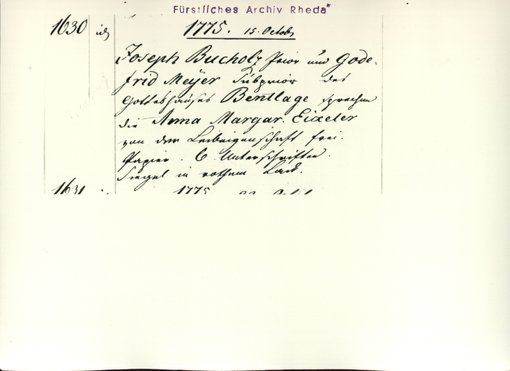 Fürstliches Archiv Rheda
1630 id. 1775. 15. Octobr
Joseph Bucholz Prior und Gode-
frid Meyer Subprior des
Gotteshauses Bentlage sprechen
die Anna Margar. Eixeler
von der Leibeigenschaft frei.
Papier. 6 Unterschriften.
Siegel in rothem Lack.
1631 1775